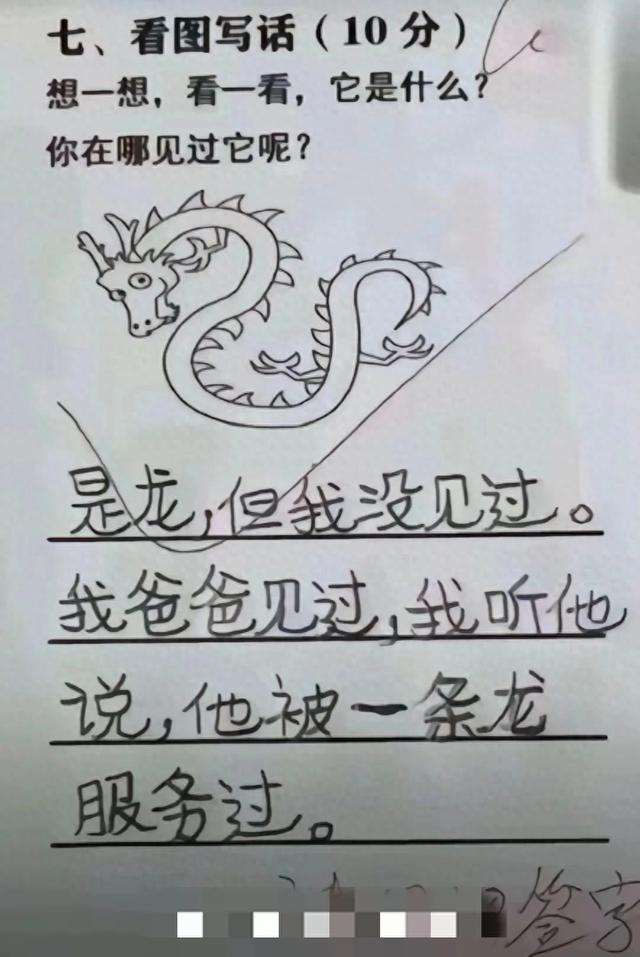 七、看图写话（10分）
想一想，看一看，它是什么？
你在哪见过它呢？
是龙，但我没见过。
我爸爸见过，我听他
说，他被一条龙
服务过。
签字